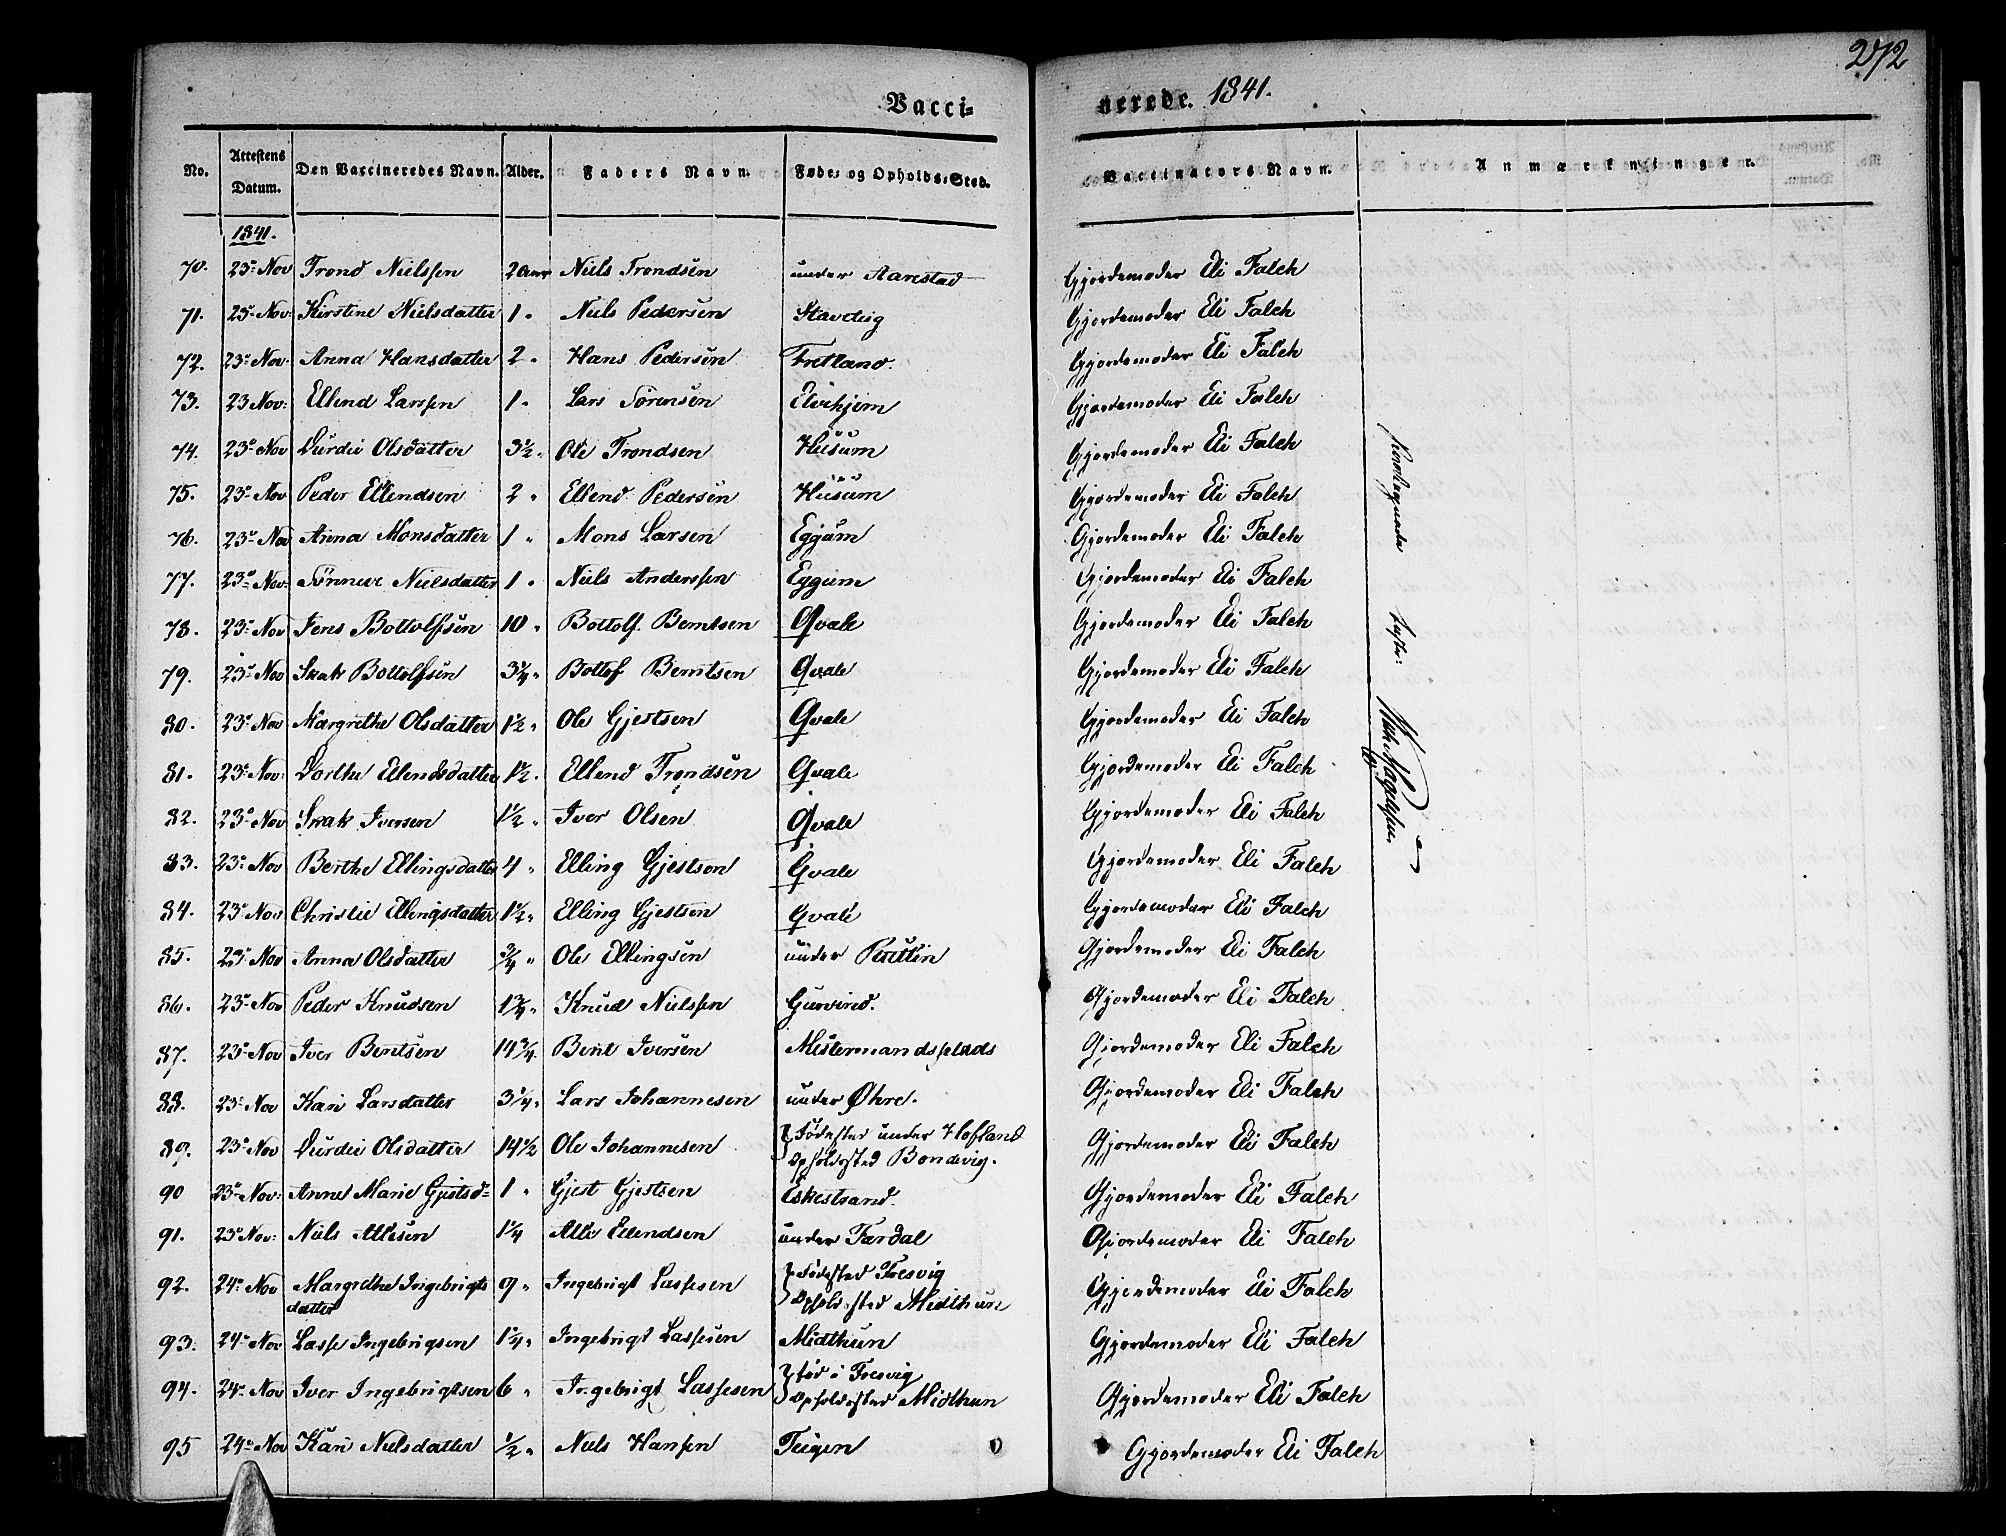 272
Vacci=
nerede. 1841.
No. Attestens Datum. Den Vaccineredes Navn. Alder. Faders Navn. Føde= og Opholds=Sted. Vaccinators Navn. Anmærkninger.
1841.
70. 23de Nov Trond Nielssen 2 Aar Niels Trondsen under Aarestad Gjordemoder Eli Falch
71. 23de Nov: Kirstine Nielsdatter 1 " Niels Pedersen Stavdig Gjordemoder Eli Falch
72. 23de Nov: Anna Hansdatter 2 " Hans Pedersen Fretland. Gjordemoder Eli Falch
73. 23 Nov: Ellend Larssen 1 " Lars Sørensen Elvehjem Gjordemoder Eli Falch
74. 23de Nov Durdei Olsdatter 3½ " Ole Trondsen Husum Gjordemoder Eli Falch
75. 23de Nov Peder Ellendsen 2 " Ellend Pedersen Husum Gjordemoder Eli Falch
76. 23de Nov Anna Monsdatter 1 " Mons Larsen Eggum Gjordemoder Eli Falch
77. 23de Nov: Sønneve Nielsdatter 1 " Niels Anderssen Eggum Gjordemoder Eli Falch
78. 23de Nov Jens Bottolfsen 10 " Bottolf Berntsen Qvale Gjordemoder Eli Falch
79. 23de Nov Skak Bottolfsen 3¼ " Bottof Berntsen Qvale Gjordemoder Eli Falch
80. 23de Nov Margrethe Olsdatter 1½ " Ole Gjestsen Qvale Gjordemoder Eli Falch
81. 23de Nov: Dorthe Ellendsdatter 1½ " Ellend Trondsen Qvale Gjordemoder Eli Falch
82. 23de Nov Skak Iversen 1½ " Iver Olsen Qvale Gjordemoder Eli Falch
83. 23de Nov Berthe Ellingsdatter 4 " Elling Gjestsen Qvale Gjordemoder Eli Falch
84. 23de Nov Christie Ellingsdatter 1½ " Elling Gjestsen Qvale Gjordemoder Eli Falch
85. 23de Nov Anna Olsdatter ¾ " Ole Ellingsen under Gjordemoder Eli Falch
86. 23de Nov Peder Knudsen 1¾ " Knud Nielssen Gurvind. Gjordemoder Eli Falch
87. 23de Nov Iver Bentsen 14¾ Bent Iversen Mestermandsplads Gjordemoder Eli Falch
88. 23de Nov Kari Larsdatter 3¼ " Lars Johannesen under Øhre. Gjordemoder Eli Falch
89. 23de Nov Durdei Olsdatter 14½ Ole Johannesen Fødested under Hofland
Opholdssted Bondevig. Gjordemoder Eli Falch
90 23de Nov: Anne Marie Gjestsd= 1 " Gjest Gjestsen Eskestrand. Gjordemoder Eli Falch
91. 23de Nov: Niels Atlesen 1¼ Atle Ellendsen under Fardal Gjordemoder Eli Falch
92. 24de Nov Margrethe Ingebrigts
datter 9 " Ingebrigt Lassesen Fødested Fresvig
Opholdssted Midthun Gjordemoder Eli Falch
93. 24de Nov Lasse Ingebrigsen 1¼ " Ingebrigt Lassesen Midthun Gjordemoder Eli Falch
94. 24de Nov Iver Ingebrigtsen 6 " Ingebrigt Lassesen født i Fresvig
Opholdssted Midthun Gjordemoder Eli Falch
95 24de Nov Kari Nielsdatter ½ " Niels Hansen Teigen Gjordemoder Eli Falch